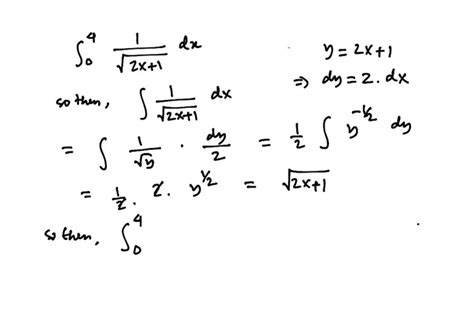 ∫₀⁴ 1/√(2x+1) dx
y = 2x+1
⇒ dy = 2 . dx
so then, ∫ 1/√(2x+1) dx
= ∫ 1/√y · dy/2 = 1/2 ∫ y^(-1/2) dy
= 1/2 . 2 . y^(1/2) = √(2x+1)
so then, ∫₀⁴